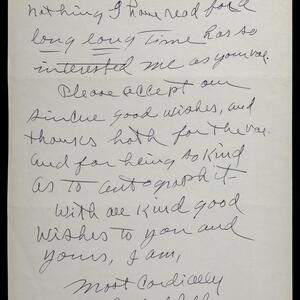 nothing I have read for a
long long time has so
interested me as your vol.
Please accept our
sincere good wishes, and
thanks both for the vol.
and for being so kind
as to autograph it
With all kind good
wishes to you and
yours, I am,
Most Cordially